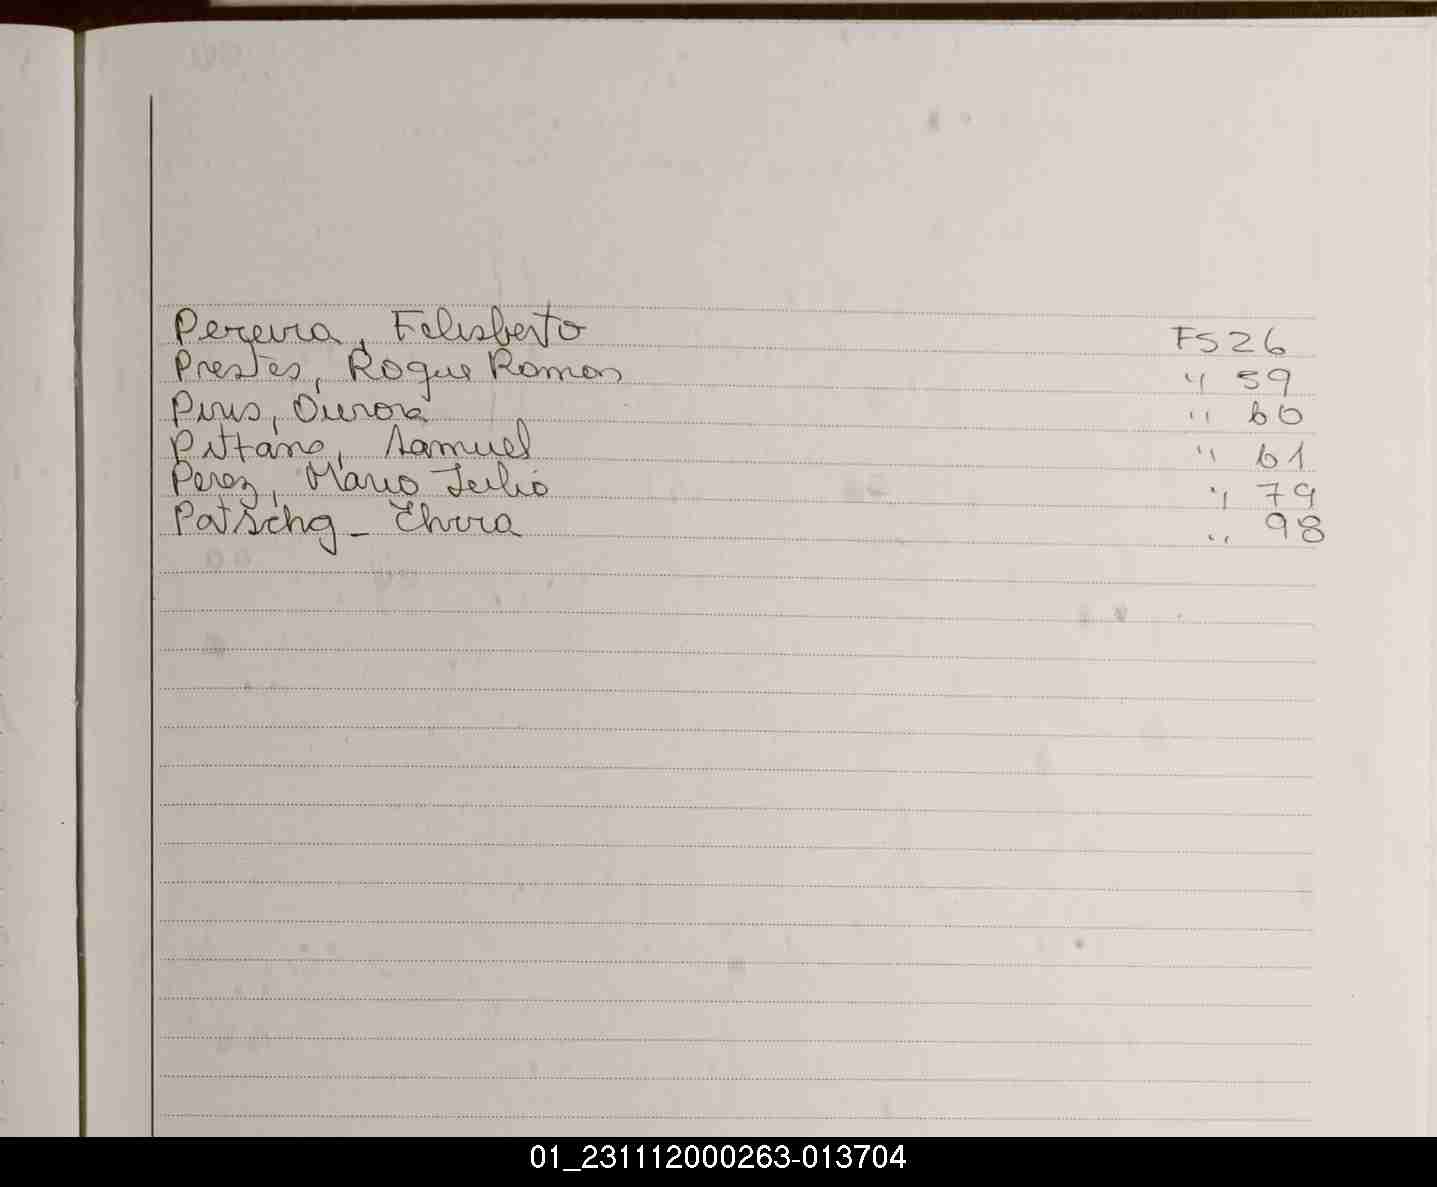 Pereira, Felisberto FS 26
Prestes, Roque Ramon " 59
Piris, Aurora " 60
Pittano, Samuel " 61
Perez, Mario Julio " 79
Patschg - Elvira " 98
01_231112000263-013704